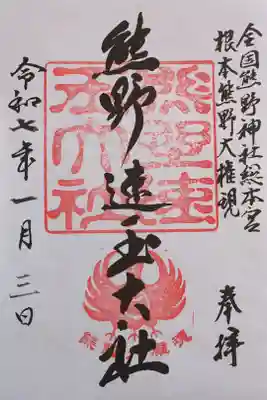 全国熊野神社総本宮
根本熊野大権現
奉拝
熊野速玉大社
令和七年一月三日